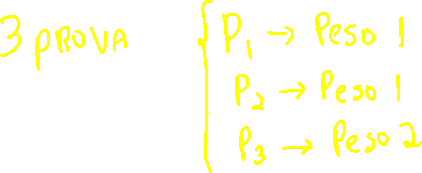 3 PROVA
P1 → Peso 1
P2 → Peso 1
P3 → Peso 2